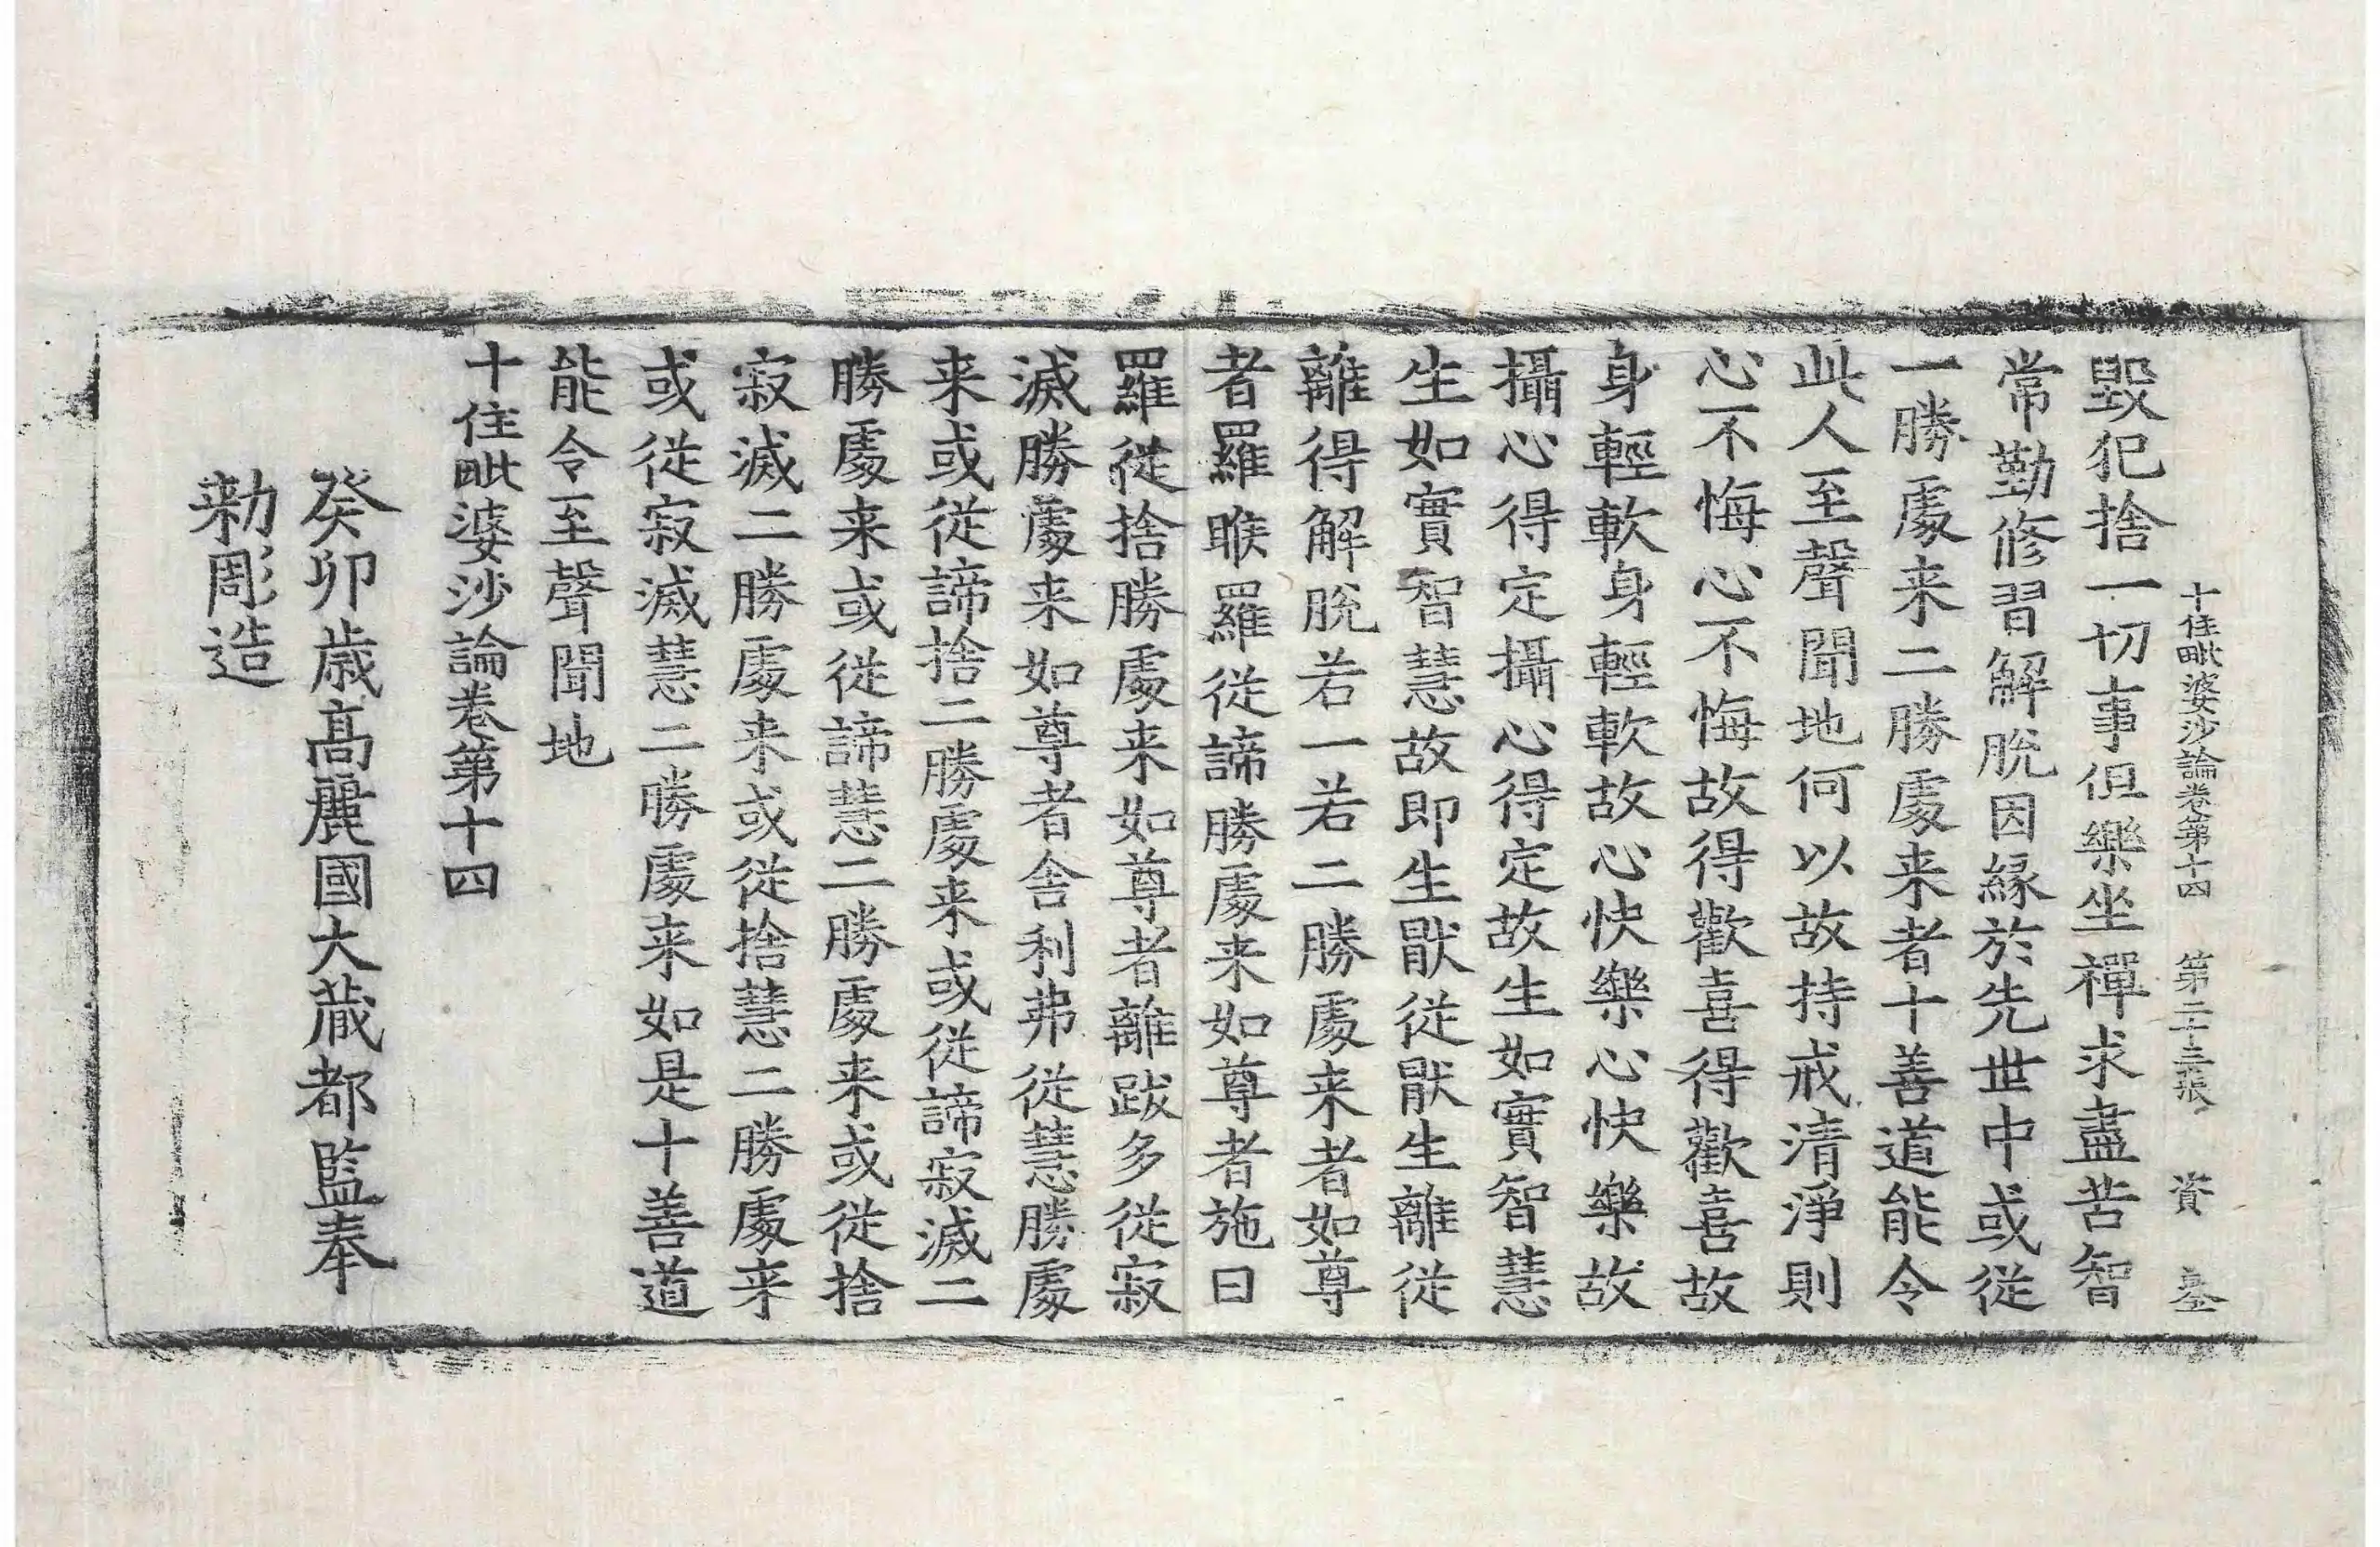 十住毗婆沙論卷第十四 第二十三張 資
毀犯捨一切事但樂坐禪求盡苦智
常勤修習解脫因緣於先世中或從
一勝處来二勝處来者十善道能令
此人至聲聞地何以故持戒清淨則
心不悔心不悔故得歡喜得歡喜故
身輕軟身輕軟故心快樂心快樂故
攝心得定攝心得定故生如實智慧
生如實智慧故即生厭從厭生離從
離得解脫若一若二勝處来者如尊
者羅睺羅從諦勝處来如尊者施曰
羅從捨勝處来如尊者離跋多從寂
滅勝處来如尊者舍利弗從慧勝處
来或從諦捨二勝處来或從諦寂滅二
勝處来或從諦慧二勝處来或從捨
寂滅二勝處来或從捨慧二勝處来
或從寂滅慧二勝處来如是十善道
能令至聲聞地
十住毗婆沙論卷第十四
癸卯歲高麗國大藏都監奉
勅彫造